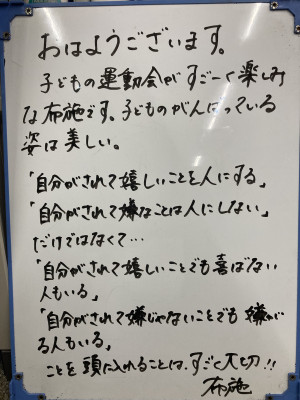 おはようございます。
子どもの運動会がすご〜く楽しみ
な布施です。子どものがんばっている
姿は美しい。
「自分がされて嬉しいことを人にする」
「自分がされて嫌なことは人にしない」
だけではなくて…
「自分がされて嬉しいことでも喜ばない
人もいる」
「自分がされて嫌じゃないことでも嫌が
る人もいる」
ことを頭に入れることは、すごく大切!!
布施